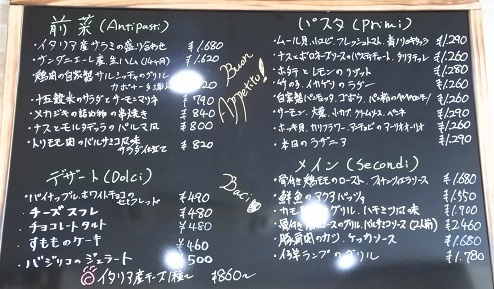 前菜 (Antipasti)
・イタリア産サラミの盛り合わせ ¥1.680
・サンダニエーレ産生ハム(14ヶ月) ¥1.620
・鶏肉の自家製サルシッチャのグリル
カポナータ
・十五穀米のサラダとサーモンマリネ ¥790
・メカジキの詰め物の串焼き ¥840
・ナスとモルタデッラのパルマ風 ¥800
・トリモモ肉のバルサミコ風味 サラダ仕立て ¥820
Buon Appetito!
デザート (Dolci)
・パイナップル、ホワイトチョコのセミフレッド ¥490
・チーズスフレ ¥480
・チョコレートタルト ¥480
・すもものケーキ ¥460
・バジリコのジェラート ¥500
イタリア産チーズ1種~ ¥860~
Baci
パスタ (Primi)
・ムール貝、小エビ、フレッシュトマト、青ノリ ¥1.290
・ナスとボロネーゼソース タリアテッレ ¥1.260
・ホタテとレモンのリゾット ¥1.280
・竹の子、イカゲソのラグー ¥1.260
・自家製パンチェッタ、ゴボウ、パン粉のペペロンチーノ ¥1.260
・サーモン、大葉、小カブ、クリームソース、ペンネ ¥1.290
・ホッキ貝、カリフラワー、アンチョビのアーリオオーリオ ¥1.260
・本日のラザニア ¥1.290
メイン (Secondi)
・骨付き鶏モモのロースト、フィナンツィエラソース ¥1.680
・鮮魚のアクアパッツァ ¥1.550
・カモ グリル、ハチミツ風味 ¥1.700
・骨付き ロースのグリル、 (2人前) ¥2.460
・豚肩肉のカツ、ケッカソース ¥1.680
・仔羊ランプのグリル ¥1.780